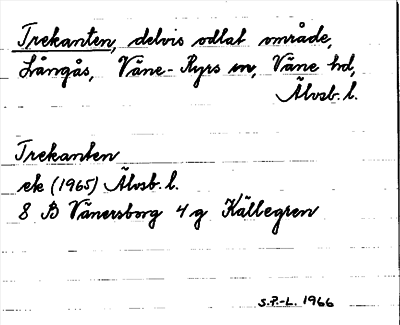 Trekanten, delvis odlat område,
Långås, Väne-Ryrs sn, Väne hd,
Älvsb. l.
Trekanten
ek (1965) Älvsb. l.
8 B Vänersborg 4 g Källegren
S.P.-L. 1966